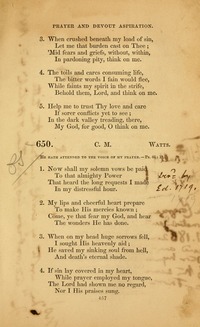 PRAYER AND DEVOUT ASPIRATION.
3. When crushed beneath my load of sin,
Let me that burden cast on Thee;
'Mid griefs and fears, without, within,
In pardoning pity, think on me.
4. The toils and cares consuming life,
The bitter words I fain would flee,
While faints my spirit in the strife,
Behold them, Lord, and think on me.
5. Help me to trust Thy love and care
If sorer conflicts yet to see;
In the dark valley treading, there,
My God, for good, O think on me.
650. C. M. WATTS.
HE HATH ATTENDED TO THE VOICE OF MY PRAYER.
1. Now shall my solemn vows be paid
To that almighty Power
That heard the long requests I made
In my distressful hour.
2. My lips and cheerful heart prepare
To make His mercies known;
Come, ye that fear my God, and hear
The wonders He has done.
3. When on my head huge sorrows fell,
I sought His heavenly aid;
He saved my sinking soul from hell,
And death's eternal shade.
4. If sin lay covered in my heart,
While prayer employed my tongue,
The Lord had shown me no regard,
Nor I His praises sung.
Ed. 1719.